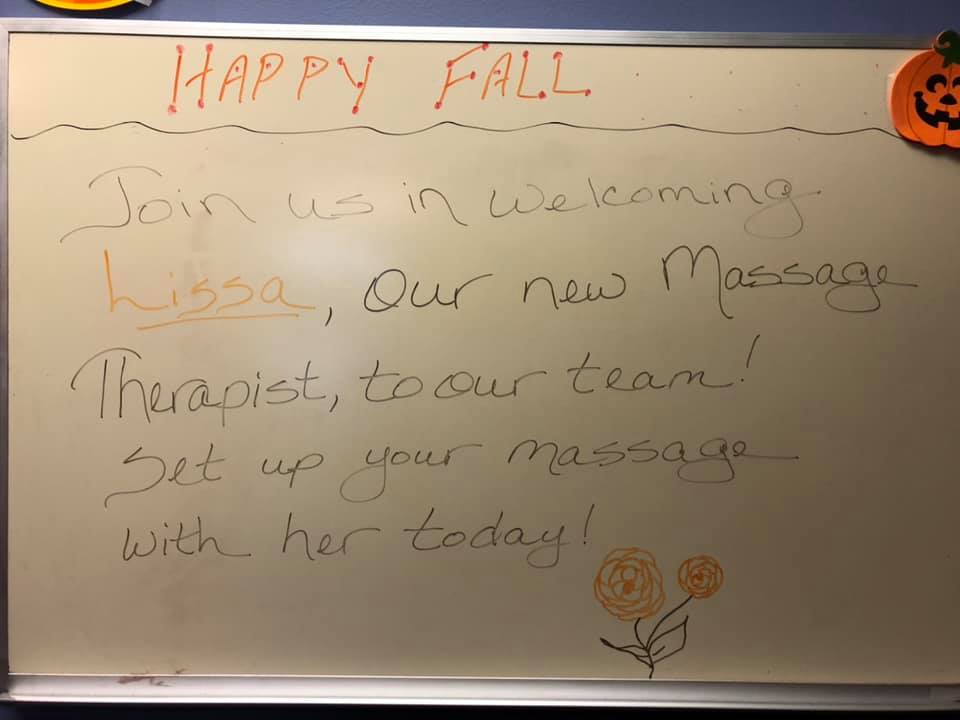 HAPPY FALL
Join us in welcoming
Lissa, Our new Massage
Therapist, to our team!
Set up your massage
with her today!